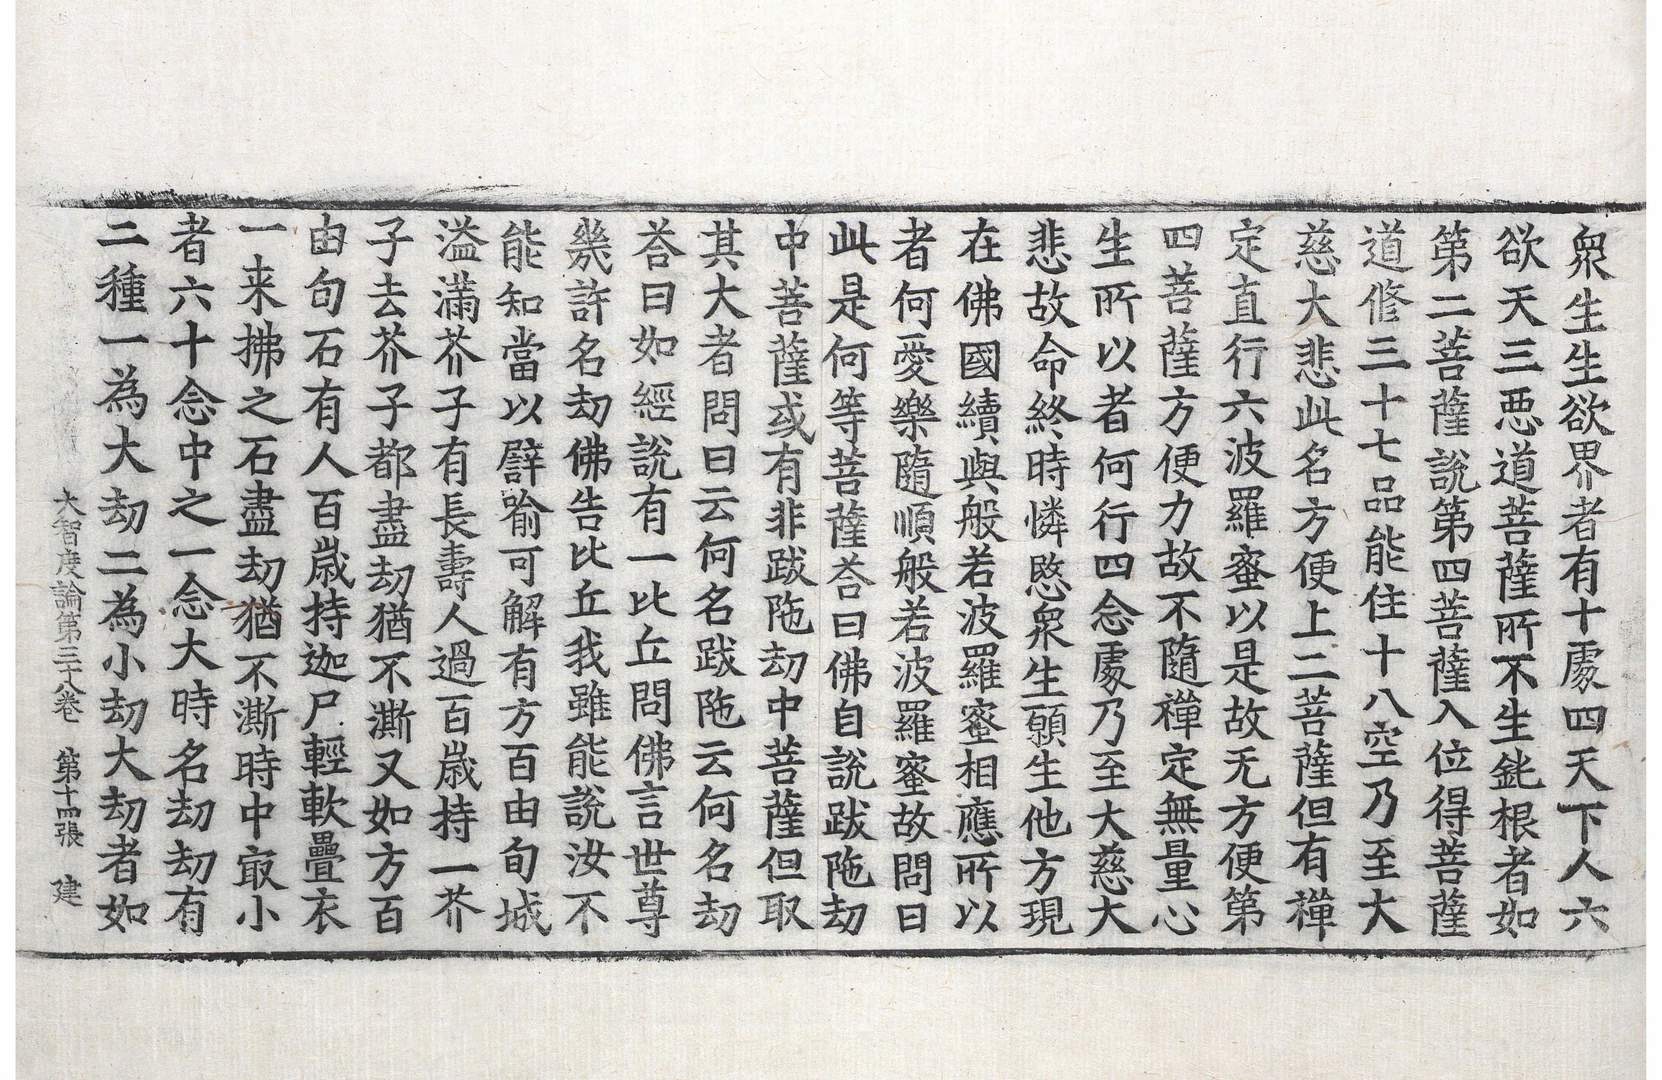 衆生生欲界者有十處四天下人六
欲天三惡道菩薩所不生鈍根者如
第二菩薩說第四菩薩入位得菩薩
道修三十七品能住十八空乃至大
慈大悲此名方便上二菩薩但有禪
定直行六波羅蜜以是故无方便第
四菩薩方便力故不隨禪定無量心
生所以者何行四念處乃至大慈大
悲故命終時憐愍衆生願生他方現
在佛國續與般若波羅蜜相應所以
者何愛樂隨順般若波羅蜜故問曰
此是何等菩薩荅曰佛自說跋陁劫
中菩薩或有非跋陁劫中菩薩但取
其大者問曰云何名跋陁云何名劫
荅曰如經說有一比丘問佛言世尊
幾許名劫佛告比丘我雖能說汝不
能知當以譬喻可解有方百由旬城
溢滿芥子有長壽人過百歲持一芥
子去芥子都盡劫猶不澌又如方百
由旬石有人百歲持迦尸輕軟疊衣
一来拂之石盡劫猶不澌時中㝡小
者六十念中之一念大時名劫劫有
二種一為大劫二為小劫大劫者如
大智度論第三十八卷 第十四張 建